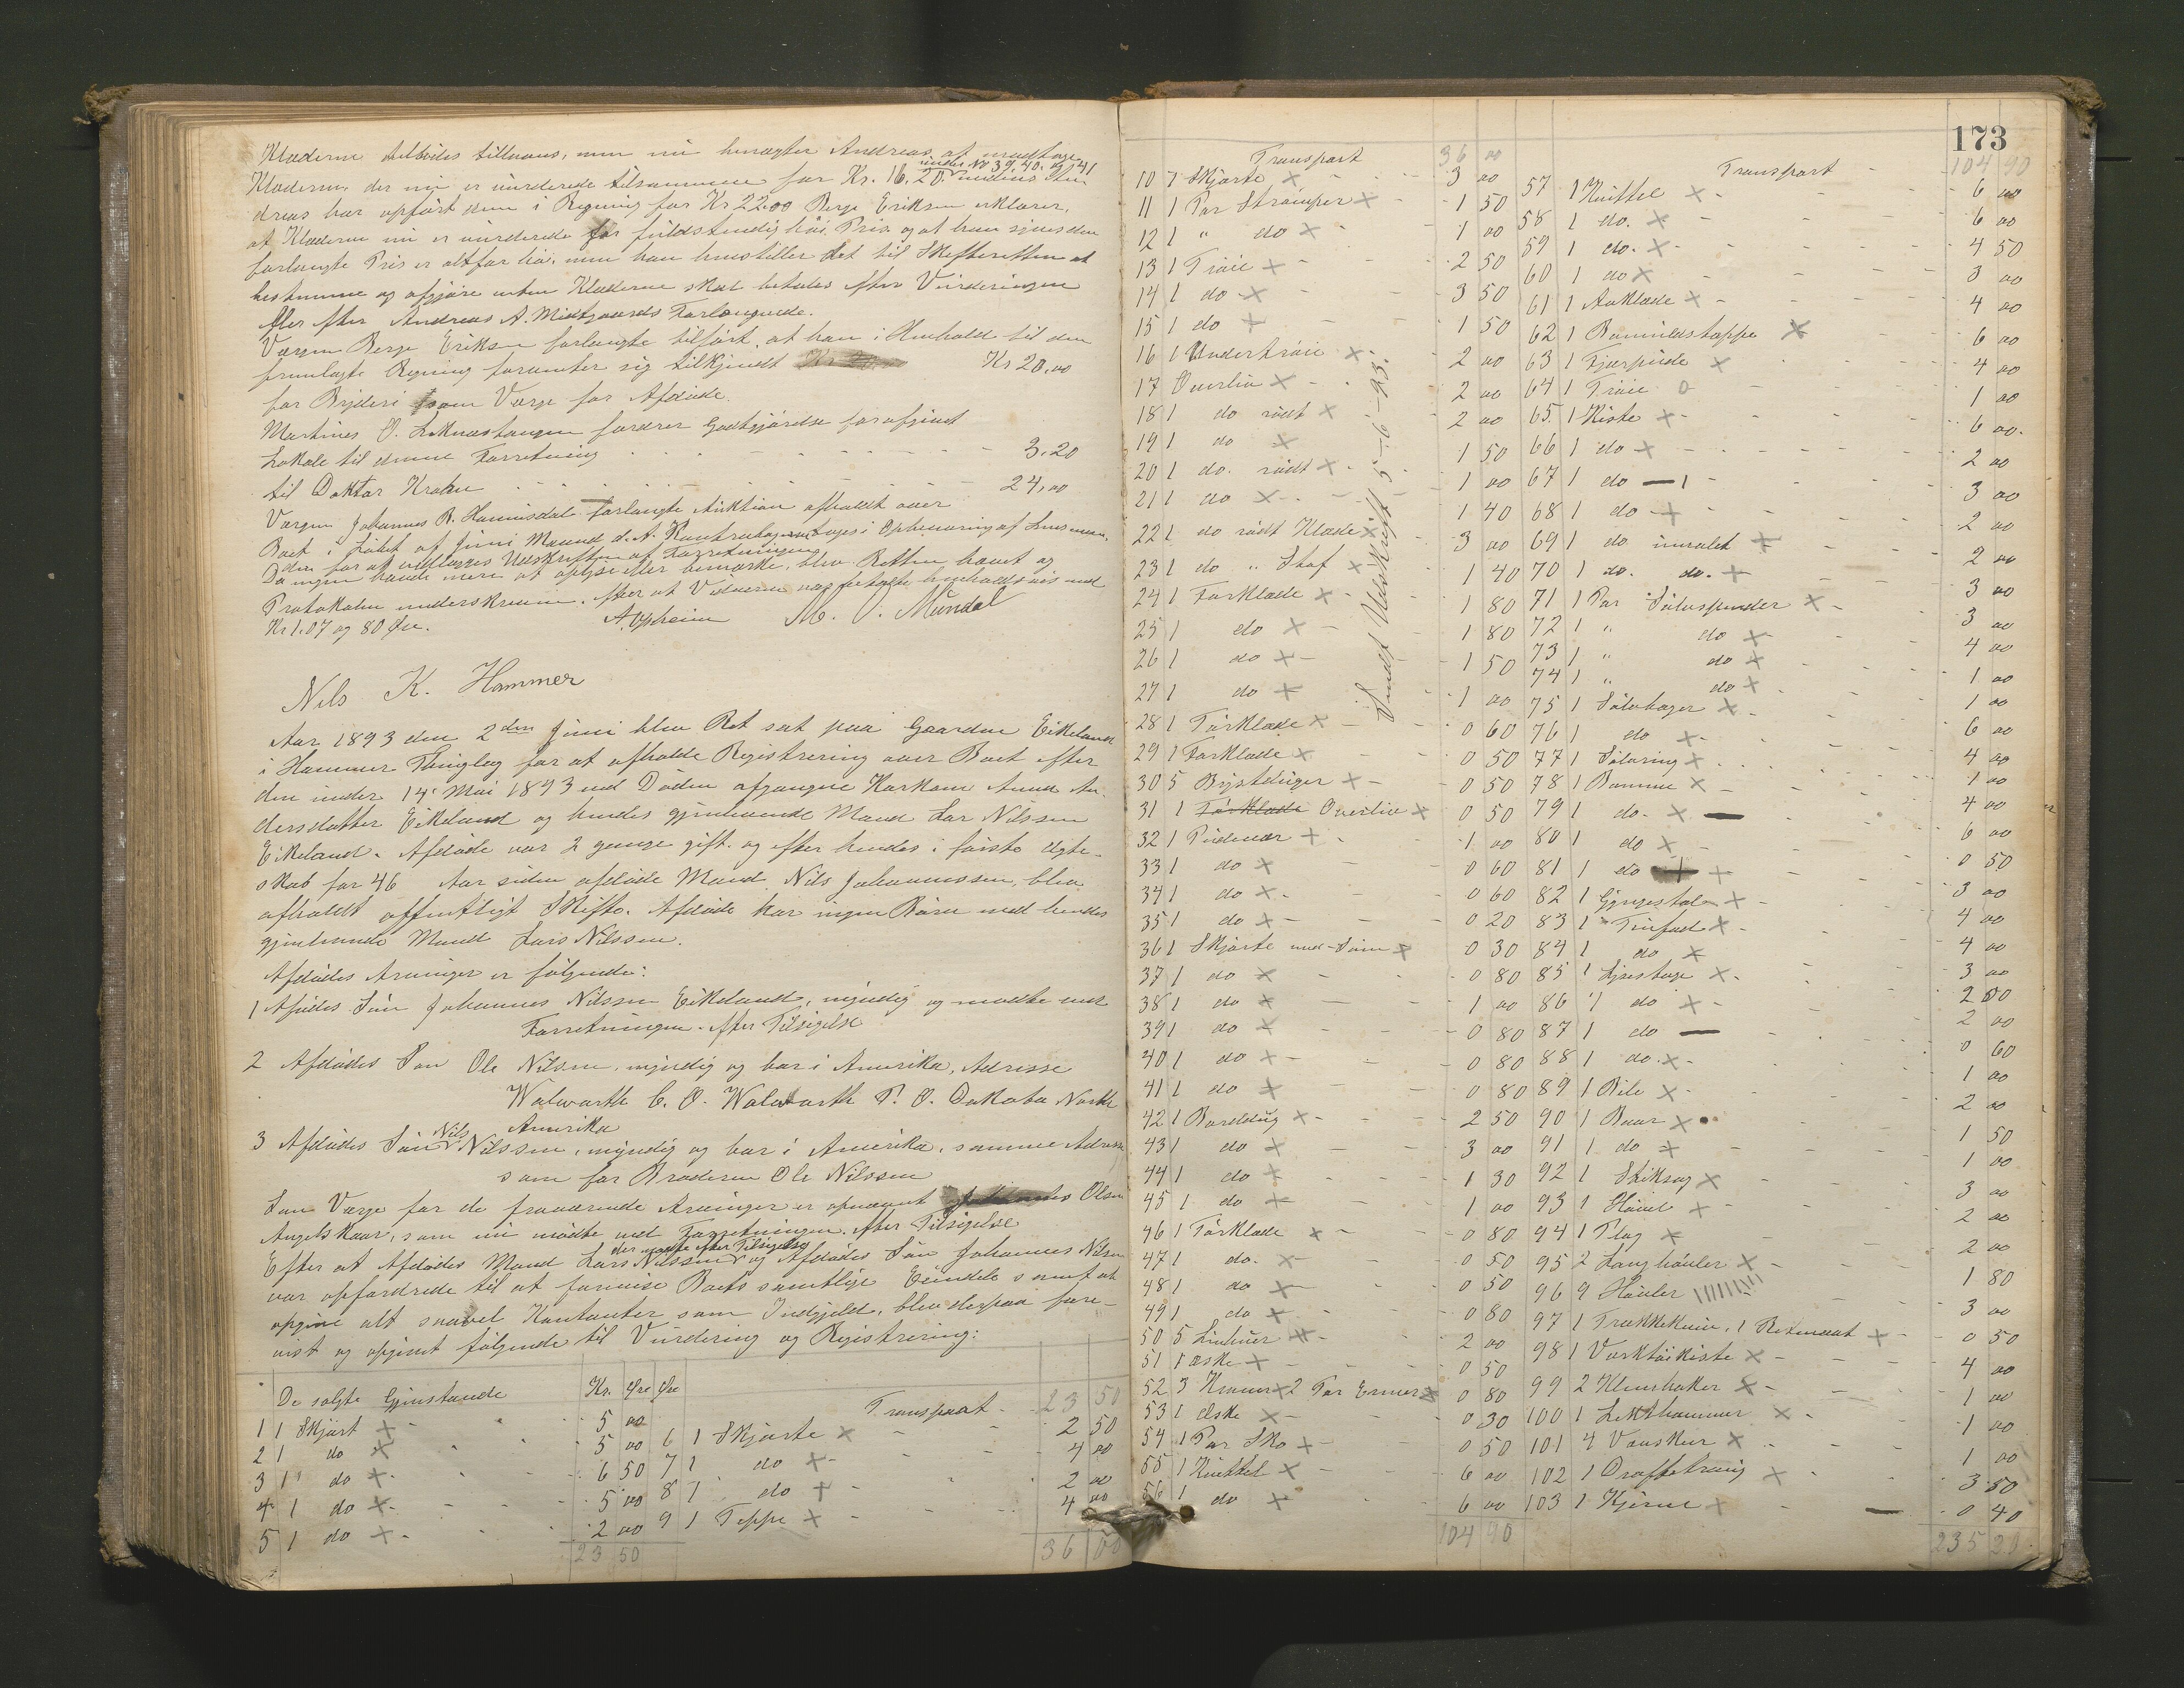 Klæderne tilbødes tillaans, men nu benægter Andreas at modtage
Klæderne, der nu er vurderede tilsammen for Kr. 16.20. under No 39, 40. og 41 medens An
dreas har opført dem i Regning for Kr 22.00 Berge Eriksen erklærer,
at Klæderne nu er vurderede for fuldstændig høi Pris og at han synes den
forlangte Pris er altfor høi, men han henstiller det til Skifteretten at
bestemme og afgjøre enten Klæderne skal betales efter Vurderingen
eller efter Andreas A. Midtgaards Forlangende.
Værgen Berge Eriksen forlangte tilført, at han i Henhold til den
fremlagte Regning forventer sig tilkjendt Kr 20,00
for Bryderi som Værge for Afdøde.
Martines O. fordrer Godtgjørelse for afgivet
Lokale til denne Forretning 3.20
til Doktor Krohn 24,00
Værgen Johannes R. Hannisdal forlangte Auktion afholdt over
Boet i Løbet af Juni Maaned d. A. tages i Opbevaring af Lensman-
den for at vedlægges Udskriften af Forretningen
Da ingen havde mere at oplyse eller bemærke, blev Retten hævet og
Protokolen underskreven, efter at Vidnerne var betalte henholdsvis med
Kr 1.07 og 80 Øre. M. O. Mundal
Nils K. Hammer
Aar 1893 den 2den Juni blev Ret sat paa Gaarden Eikeland
i Hammer Thinglag for at afholde Registrering over Boet efter
den under 14. Mai 1893 ved Døden afgangne Karkone Anna An-
dersdatter Eikeland og hendes gjenlevende Mand Lar Nilssen
Eikeland. Afdøde var 2 gange gift. og efter hendes i første Ægte-
skab for 46 Aar siden afdøde Mand, Nils Johannessen, blev
afholdt offentligt Skifte. Afdøde har ingen Børn med hendes
gjenlevende Mand Lars Nilssen.
Afdødes Arvinger er følgende:
1 Afdødes Søn Johannes Nilssen Eikeland, myndig og mødte ved
Forretningen efter Tilsigelse
2 Afdødes Søn Ole Nilssen, myndig og bor i Amerika, Adresse
Walworth C. O. Walworth P. O. Dakota North
Amerika
3 Afdødes Søn Nils Nilssen, myndig og bor i Amerika, samme Adresse
som for Broderen Ole Nilssen
Som Værge for de fraværende Arvinger er opnævnt Olsen
Angelskaar, som nu mødte ved Forretningen efter Tilsigelse
Efter at Afdødes Mand Lars Nilssen der mødte efter Tilsigelse og Afdødes Søn Johannes Nilsen
var opfordrede til at forevise Boets samtlige Eiendele samt at
opgive alt saavel Kontanter som Indgjeld, blev derpaa fore-
vist og opgivet følgende til Vurdering og Registrering:
De solgte Gjenstande Kr. Øre Øre
1 1 Skjørt 5 00
2 1 do 5 00
3 1 do 6 50
4 1 do 5 00
5 1 do 2 00
23 50
Transport 23 50
6 1 Skjørte 2 50
7 1 do 4 00
8 1 do 2 00
9 1 Teppe 4 00
36 00
173
Transport 36 00
10 1 Skjørte 3 00
11 1 Par Strømper 1 50
12 1 " do 1 00
13 1 Trøie 2 50
14 1 do 3 50
15 1 do 1 50
16 1 Undertrøie 2 00
17 Overliv 2 00
18 1 do rødt 2 00
19 1 do 1 50
20 1 do. rødt 1 00
21 1 do 1 40
22 1 do rødt Klæde 3 00
23 1 do " Stof 1 40
24 1 Forklæde 1 80
25 1 do 1 80
26 1 do 1 50
27 1 do 1 00
28 1 Tørklæde 0 60
29 1 Forklæde 0 50
30 5 Brystduger 0 50
31 1 Tørklæde Overliv 0 50
32 1 Pudevær 1 00
33 1 do 0 60
34 1 do 0 60
35 1 do 0 20
36 1 Skjorte med Søm 0 30
37 1 do 0 80
38 1 do 1 00
39 1 do 0 80
40 1 do 0 80
41 1 do 0 80
42 1 Borddug 2 50
43 1 do 3 00
44 1 do 1 30
45 1 do 1 00
46 1 Tørklæde 0 80
47 1 do. 0 50
48 1 do 0 50
49 1 do 0 80
50 5 Linhuer 2 00
51 1 æske 0 50
52 3 2 Par Ermer 0 80
53 1 Æske 0 30
54 1 Par Sko 0 50
55 1 Kuittel 6 00
56 1 do 6 00
104 90
Sendt Udskrift 5-6-93.
Transport 104 90
57 1 Kuittel 6 00
58 1 do. 6 00
59 1 do. 4 50
60 1 do 3 00
61 1 Aaklæde 4 00
62 1 6 00
63 1 Fjærpude 4 00
64 1 Trøie 1 00
65. 1 Kiste 6 00.
66 1 do 2 00
67 1 do 3 00
68 1 do 2 00
69 1 do umalet 2 00
70 1 do. do. 3 00
71 1 Par Sølvspender 3 00
72 1 " do 4 00
73 1 " do 1 00
74 1 " do 1 00
75 1 Sølvbæger 6 00
76 1 do 4 00
77 1 Sølvring 1 00
78 1 Bomme 4 00
79 1 do. 6 00
80 1 do 0 50
81 1 do 3 00
82 1 Gyngestol 4 00
83 1 Tinfad 4 00
84 1 do 3 00
85 1 Lysestage 2 00
86 1 do 2 00
87 1 do 0 60
88 1 do. 1 00
89 1 Bile 2 00
90 1 Baar 1 50
91 1 do 1 00
92 1 Stiksag 3 00
93 1 Høvel 2 00
94 1 Plog 2 00
95 2 Langhøvler 1 80
96 9 Høvler 3 00
97 1 Trækkekniv, 1 0 50
98 1 Værktøikiste 4 00
99 2 1 00
100 1 Lekthammer 1 00
101 4 1 00
102 1 3 50
103 1 Kjerne 0 40
235 20